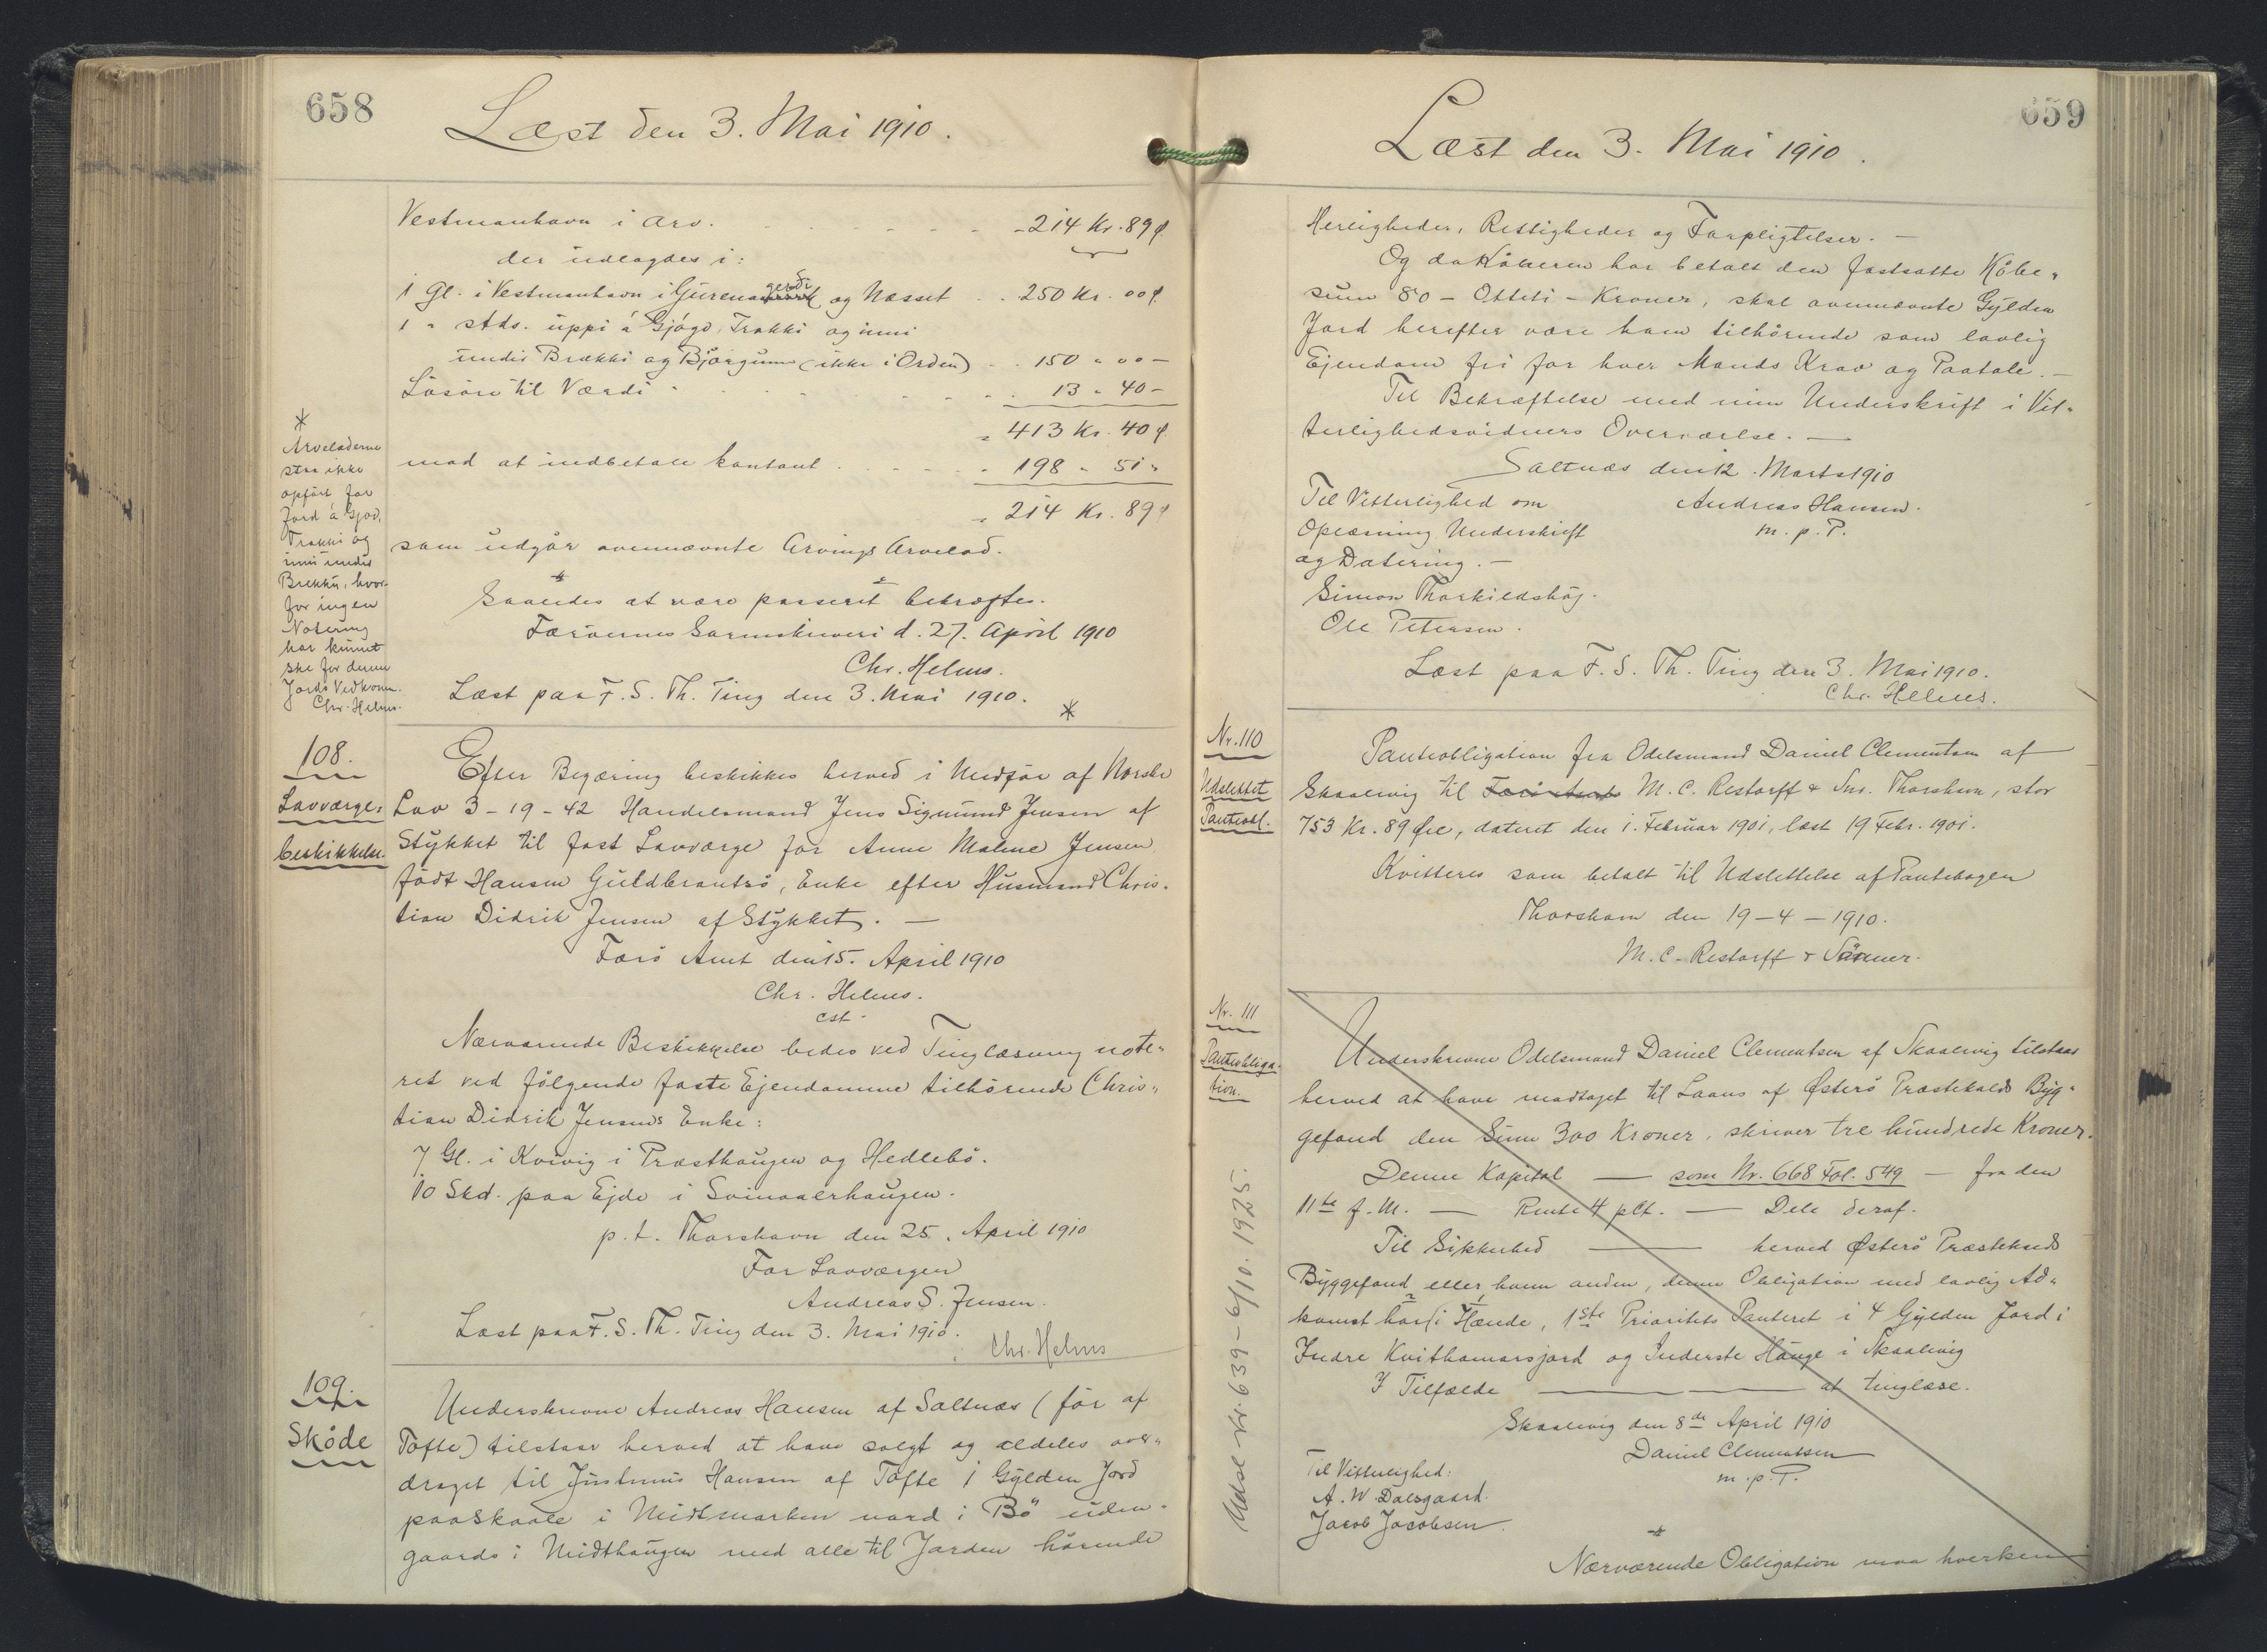 658
Læst den 3. Mai 1910.
Vestmanhavn i Arv. 214 Kr. 89 ø
der udlagdes i:
1 Gl. i Vestmanhavn i Gurena gerdi og Næsset 250 Kr. 00 ø
1 " stds. uppi á Gjógv, Trøkki og inni
undir Brekki og Bjørgum (ikke i Orden) 150 " 00 -
Løsøre til Værdi 13 " 40 -
= 413 Kr. 40 ø
mod at indbetale kontant 198 " 51 "
= 214 Kr. 89 ø
som udgør ovennævnte Arvings Arvelod.
Saaledes at være passeret bekræftes.
Færøernes Sorenskriveri d. 27. April 1910
Chr. Helms.
Læst paa F. S. Th. Ting den 3. Mai 1910. *
*
Arveladerne
staa ikke
opført for
Jord á Gjov,
Trøkki og
inni undir
Brekku, hvor-
for ingen
Notering
har kunnet
ske for denne
Jords Vedkomm.
Chr. Helms.
108.
Lavværge-
beskikkelse.
Efter Begæring beskikkes herved i Medfør af Norske
Lov 3-19-42 Handelsmand Jens Sigmund Jensen af
Stykket til fast Lavværge for Anne Maline Jensen
født Hansen Guldbrandsø, Enke efter Husmand Chris-
tian Didrik Jensen af Stykket. —
Færø Amt den 15. April 1910
Chr. Helms.
cst.
Nærværende Beskikkelse bedes ved Tinglæsning note-
ret ved følgende faste Ejendomme tilhørende Chris-
tian Didrik Jensens Enke:
7 Gl. i Kvivig i Præsthaugen og Hedlebø.
10 Skd. paa Ejde i Svinaalrhaugen.
p. t. Thorshavn den 25. April 1910
For Lavværgen
Andreas S. Jensen.
Læst paa F. S. Th. Ting den 3. Mai 1910.
Chr. Helms
109.
Skøde
Underskrevne Andreas Hansen af Saltnæs (før af
Tofte) tilstaar herved at have solgt og aldeles over-
draget til Justinus Hansen af Tofte 1 Gylden Jord
paa Skaale i Midtmarken nord i Bø uden-
gaards i Midthaugen med alle til Jorden hørende
659
Læst den 3. Mai 1910.
Herligheder, Rettigheder og Forpligtelser. —
Og da Køberen har betalt den fastsatte Købe-
sum 80 - Otteti - Kroner, skal ovennævnte Gylden
Jord herefter være ham tilhørende som lovlig
Ejendom fri for hver Mands Krav og Paatale. —
Til Bekræftelse med min Underskrift i Vit-
terlighedsvidners Overværelse. —
Saltnæs den 12. Marts 1910
Til Vitterlighed om
Andreas Hansen.
Oplæsning Underskrift
m. p. P.
og Datering. —
Simon Thorkildshøj.
Ole Petersen.
Læst paa F. S. Th. Ting den 3. Mai 1910.
Chr. Helms.
Nr. 110
Udslettet
Panteobl.
Panteobligation fra Odelsmand Daniel Clementsen af
Skaalevig til M. C. Restorff & Snr. Thorshavn, stor
753 Kr. 89 Øre, dateret den 1. Februar 1901, læst 19 Febr. 1901.
Kvitteres som betalt til Udslettelse af Pantebogen
Thorshavn den 19-4-1910.
M. C. Restorff & Sønner.
Nr. 111
Panteobliga-
tion.
Underskrevne Odelsmand Daniel Clementsen af Skaalevig tilstaar
herved at have modtaget til Laans af Østerø Præstekalds Byg-
gefond den Sum 300 Kroner, skriver tre hundrede Kroner.
Denne Kapital — som Nr. 668 Fol. 549 — fra den
11te f. M. — Rente 4 pCt. — Dele deraf.
Til Sikkerhed — herved Østerø Præstekalds
Byggefond eller hvem anden, denne Obligation med lovlig Ad-
komst har i Hænde, 1ste Prioritets Panteret i 4 Gylden Jord i
Indre Kvithamarsjord og Inderste Hauge i Skaalevig
I Tilfælde — — at tinglæse.
Skaalevig den 8de April 1910
Daniel Clementsen
m. p. P.
Til Vitterlighed:
A. W. Dalsgaard.
Jacob Jacobsen.
Nærværende Obligation maa hverken
Udsl. Nr. 639 - 6/10. 1925.